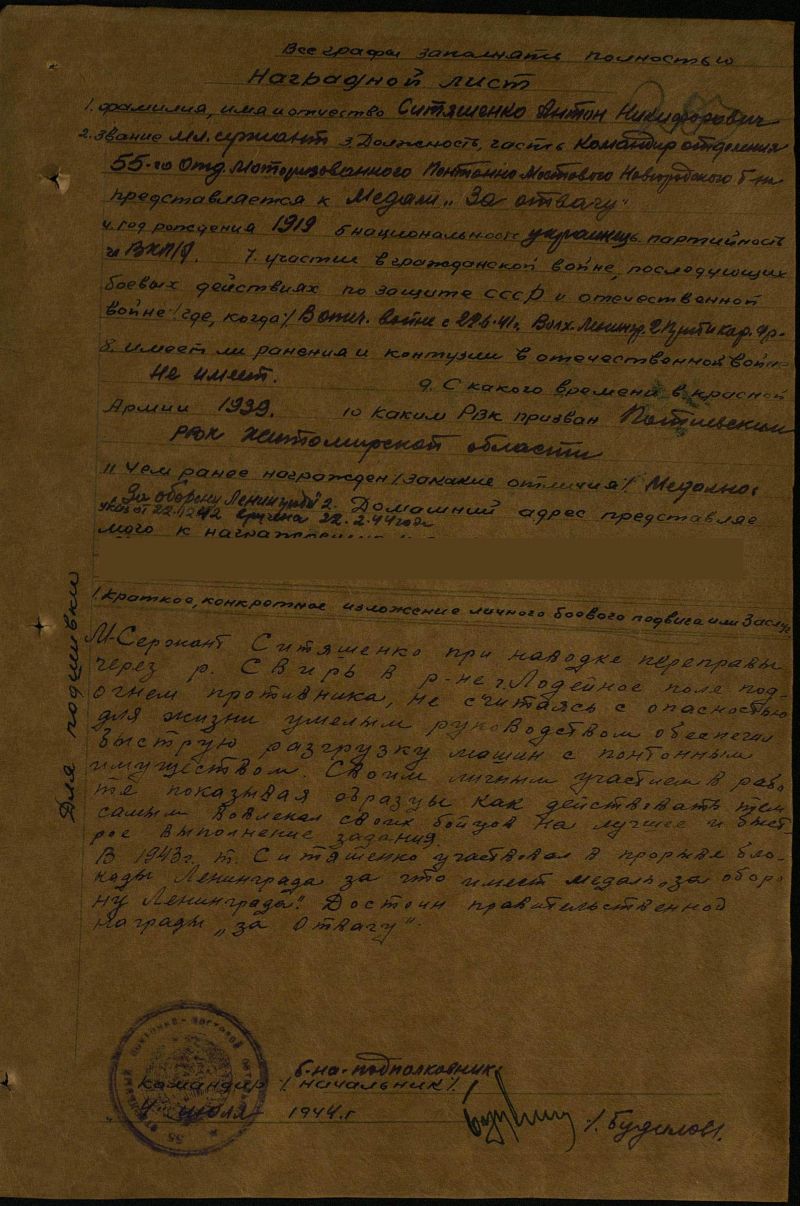 Все графы заполнять полностью
Наградной лист
1. фамилия, имя и отчество Ситяшенко Антон Никифорович
2. звание мл. сержант 3. Должность, часть Командир отделения
55-го Отд. Моторизованного Понтонно Мостового Новгородского б-на
представляется к Медали „За отвагу"
4. год рождения 1919 5 национальность украинец 6. партийность
ч ВКП/б. 7. участие в гражданской войне, последующих
боевых действиях по защите СССР и отечественной
войне /где, когда/ В отеч. войне с 22.6.41г.
8. имеет ли ранения и контузии в отечественной войне
Не имеет. 9. С какого времени в красной
Армии 1939. 10 Каким РВК призван
РВК Житомирской области
11 Чем ранее награжден /за какие отличия/ Медалью
За оборону Ленинграда 2. Домашний адрес представляе
указ от 22.12.42 вручена 22.2.44 года
мого к награждению
1. Краткое, конкретное изложение личного боевого подвига или заслуг
М-Сержант Ситяшенко при наводке переправы
через р. Свирь в р-не г. Лодейное поле под
огнем противника, не считаясь с опасностью
для жизни умелым руководством обеспечил
быструю разгрузку машин с понтонным
имуществом. Своим личным участием в рабо
те показывая образцы как действовать тем
самым вовлекал своих бойцов на лучшее и быст-
рое выполнение задания.
В 1943г. т. Ситяшенко участвовал в прорыве бло-
кады Ленинграда за что имеет медаль „за оборо
ну Ленинграда". Достоин правительственной
награды „за Отвагу".
Для подшивки
б-на-подполковник
Командир /начальник/.
4 июля 1944.г /Будилов/.